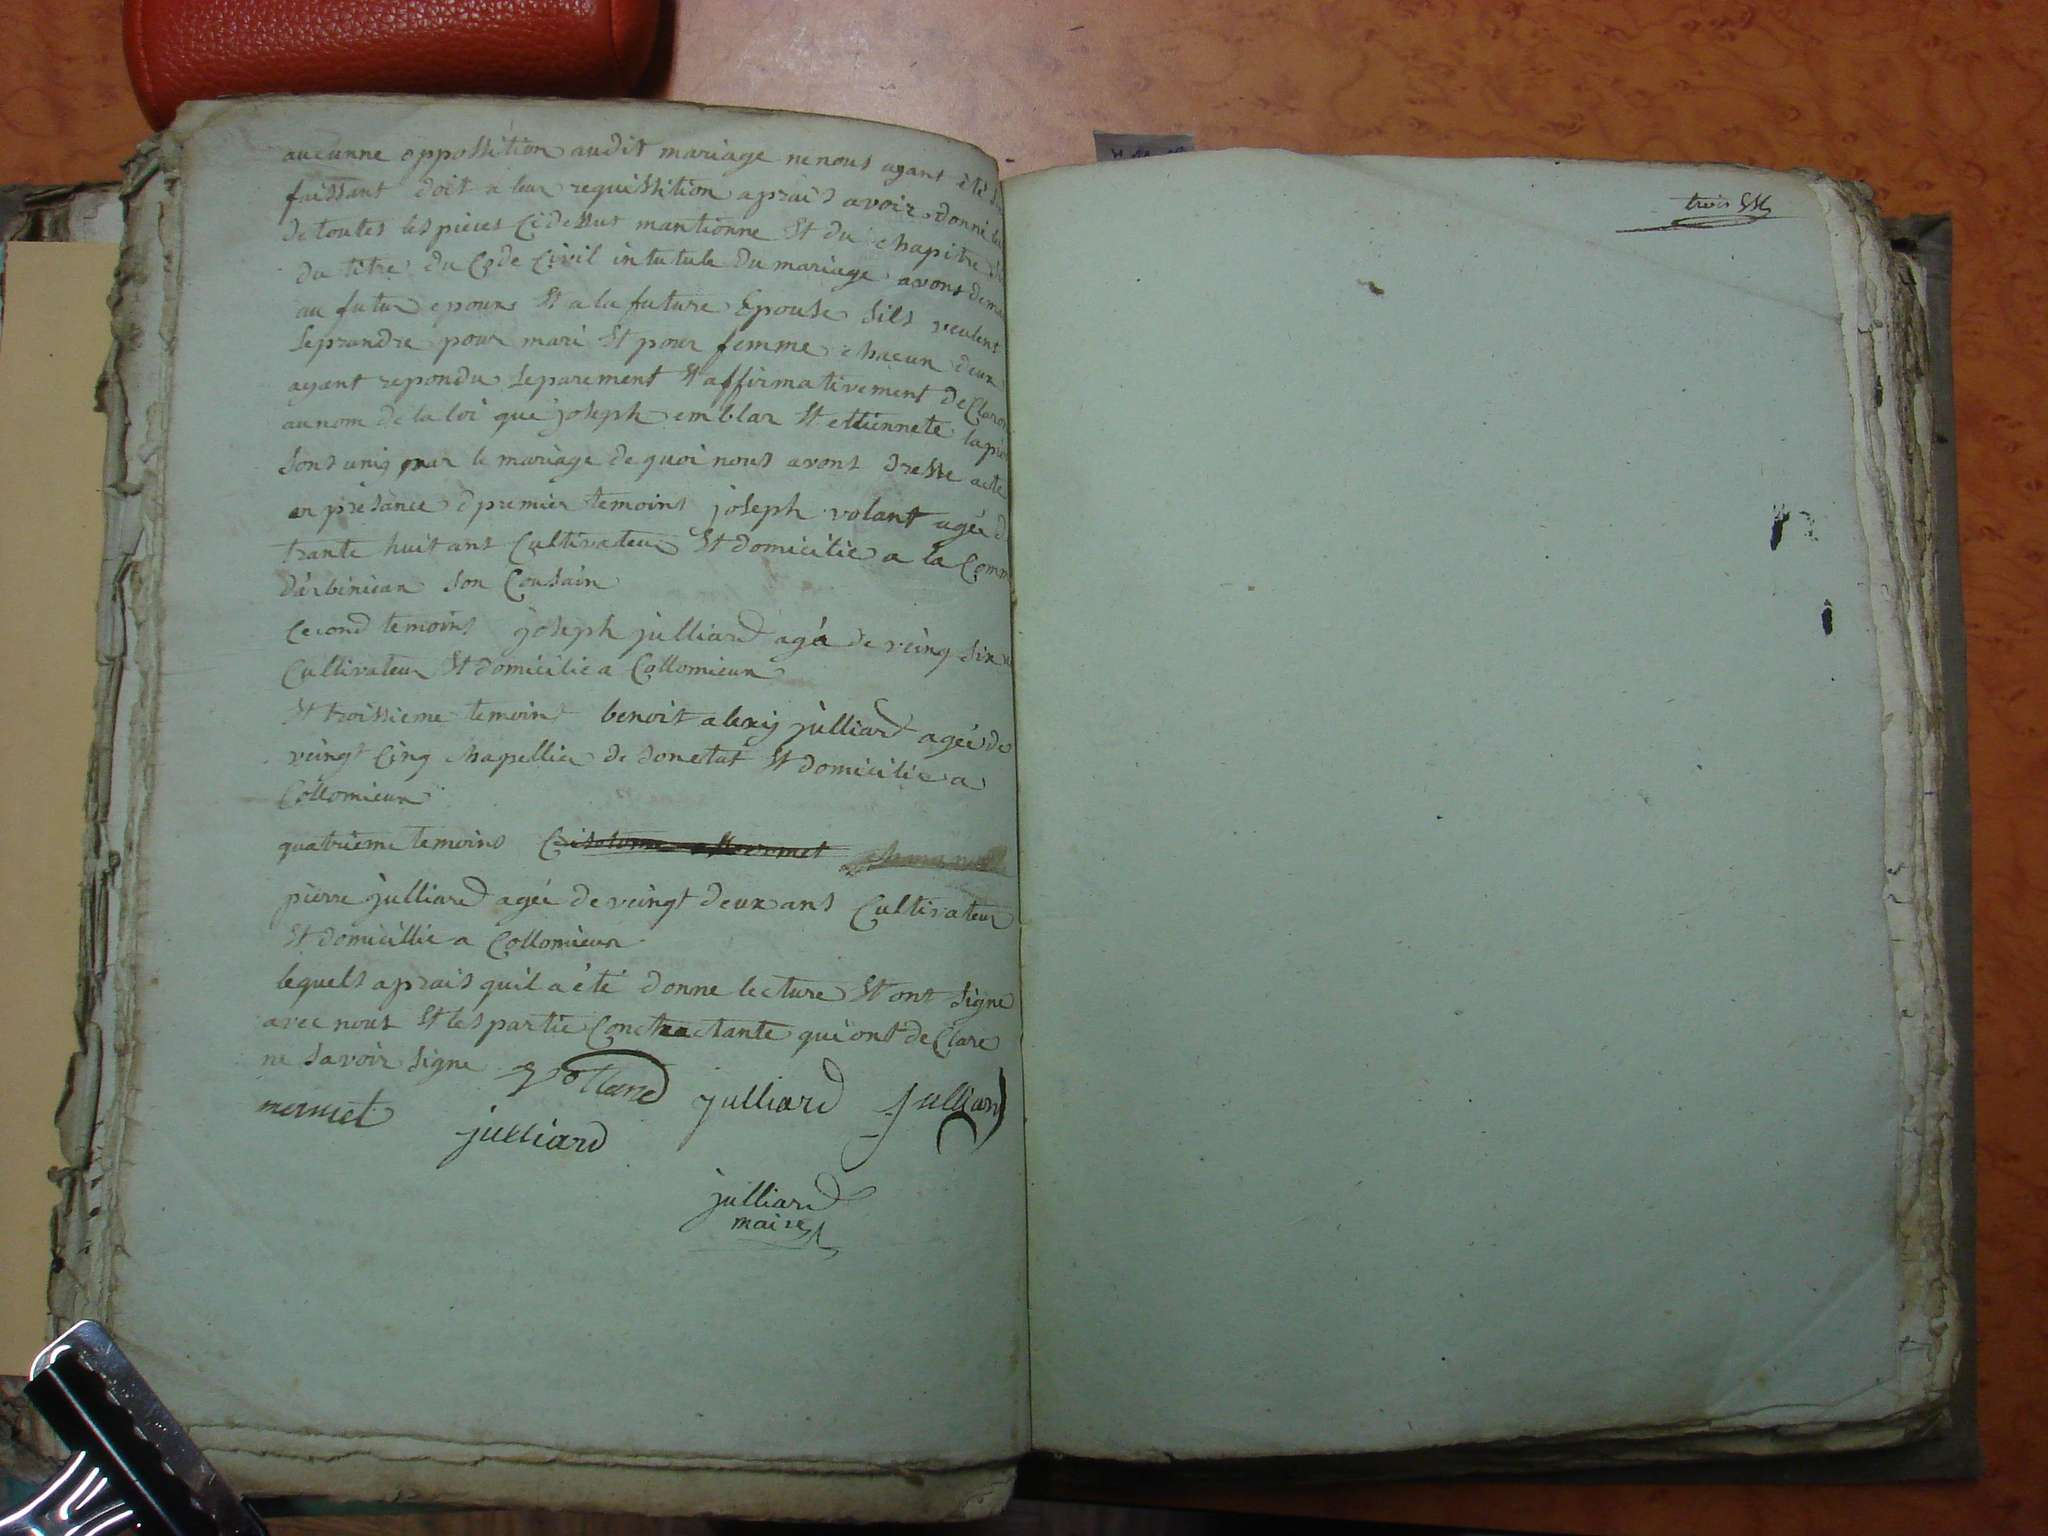 aucunne oppossition audit mariage ne nous ayant été
faissant doit a leur requissition aprais avoir donné
de toutes les pieces Cidessus mantionne Et du chapitre
du titre du Code Civil intutule du mariage avons dema
au futur epoux Et a la future Epouse sils veulent
se prandre pour mari Et pour femme chacun deux
ayant repondu separement Et affirmativement deClaron
au nom de la loi que joseph emblar Et etiennete lapie
sons unis par le mariage de quoi nous avons dresse acte
en présance d premier temoins joseph volant agée d
trante huit ans Cultivateur Et domicilie a la Comm
d'arbinieux son Cousain
Cecond temoins joseph julliard agéa de veing six
Cultivateur Et domicilie a Collomieux
Et troissieme temoins benoit alexis julliard agée de
veingt Cinq chapellier de sonetat Et domicilie a
Collomieux
quatrieme temoins
pierre julliard agée de veingt deux ans Cultivateur
Et domicillie a Collomieux
lequels aprais quil a été donne lecture Et ont signe
avec nous Et les partie Conctractante qui ont deClare
ne savoir signe Volland julliard julliard
merniet julliard
julliard
maire
trois